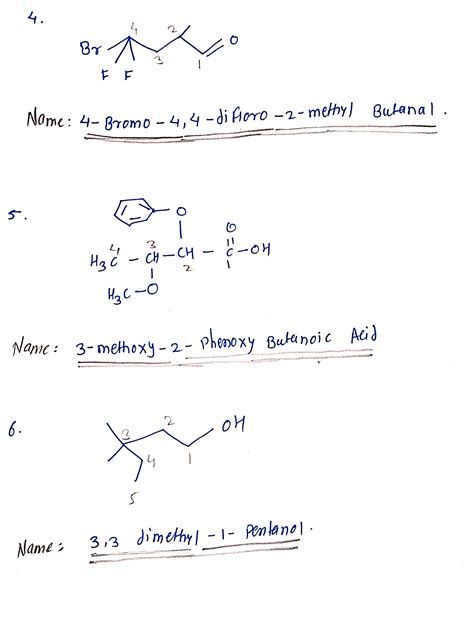 4.
4 2
Br O
3 1
F F
Name: 4-Bromo-4,4-difloro-2-methyl Butanal.
5.
O O
4 3 ||
H3C - CH - CH - C - OH
| 2 1
H3C - O
Name: 3-methoxy-2-Phenoxy Butanoic Acid
6.
2 OH
3
4 1
5
Name: 3,3 dimethyl-1-Pentanol.